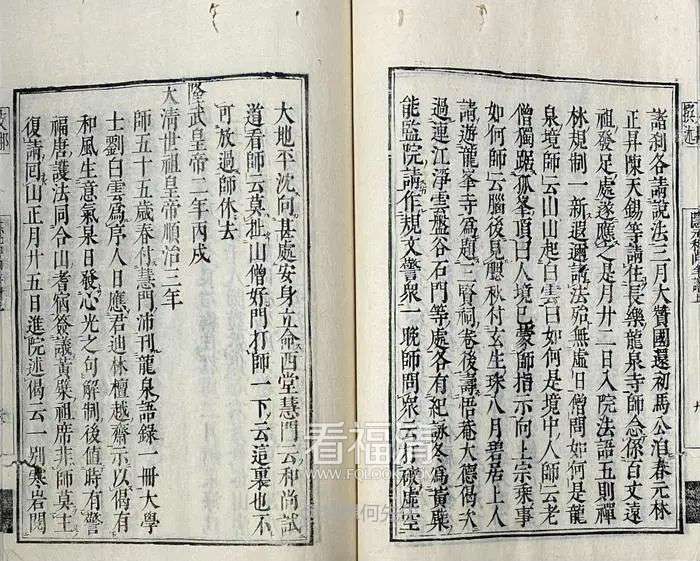 諸刹各請說法三月大賛國還初馬公泊春元林
正昇陳天錫等請住長樂龍泉寺師念係百丈遠
祖發足處遂應之是月廿二日入院法語五則禪
林規制一新遐邇請法殆無虛日僧問如何是龍
泉境師云山山起白雲曰如何是境中人師云老
僧獨踞孤峯頂曰人境已蒙師指示向上宗乘事
如何師云腦後見腮秋付玄生珠八月碧居上人
請遊龍峯寺爲題三賢祠卷後諱悟菴大德偈次
過連江淨雲盤谷石門等處各有紀詠冬爲黃檗
能監院請作規文警衆一晚師問衆云
大地平沈向甚處安身立命西堂慧門云和尚試
道看師云莫扯山僧好門打師一下云這裏也不
可放過師休去
隆武皇帝二年丙戌
大清世祖皇帝順治三年
師五十五歲春付慧門沛刊龍泉語錄一冊大學
士劉白雲爲序人日應君迪林檀越齋示以偈有
和風生意氣杲日發心光之句解制後值時有警
福唐護法同合山耆宿僉議黃檗祖席非師莫主
復請回山正月廿五日進院述偈云一別寒岩閱
看福清
WWW.FOLOOK